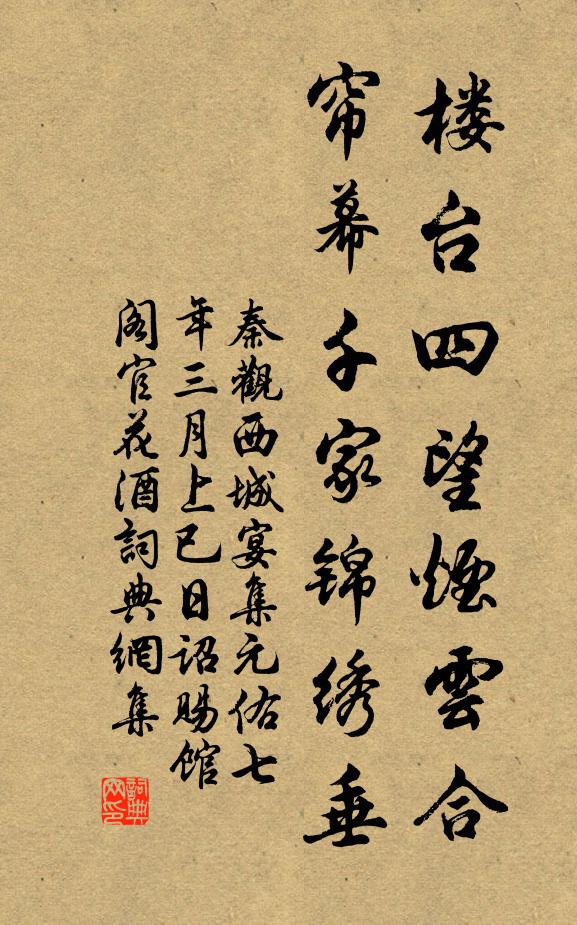 楼台四望煙雲合
帘幕千家锦绣垂
秦觀西城宴集元佑七
年三月上巳日诏賜館
阁官花酒詞典網集
詞典网印